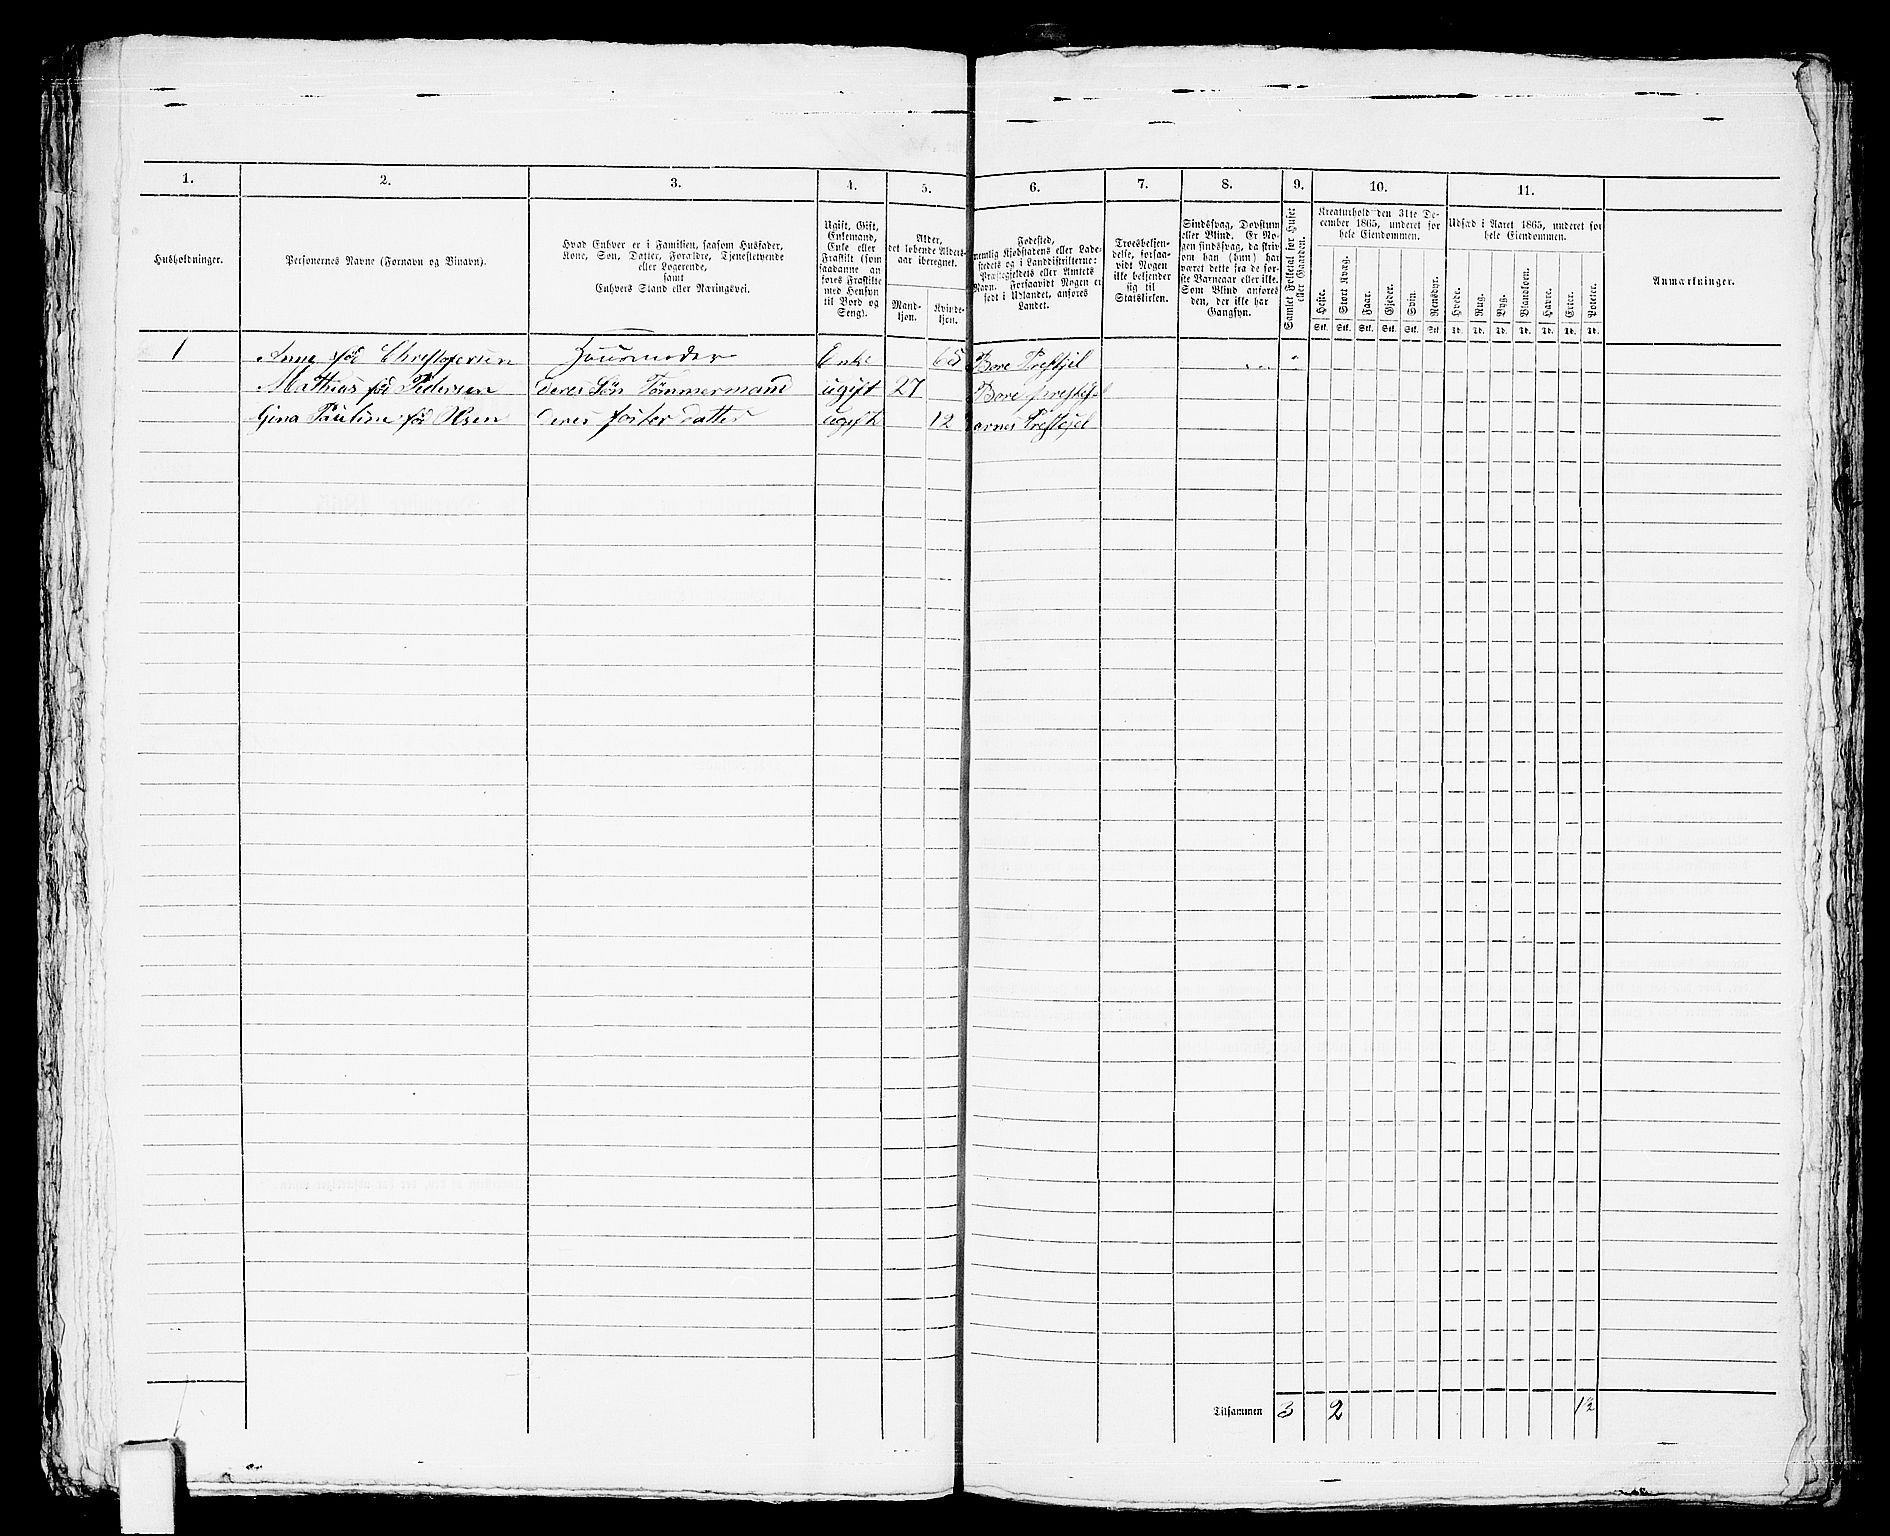 1. 2. 3. 4. 5. 6. 7. 8. 9. 10. 11.
Husholdninger.
Personernes Navne (Fornavn og Binavn).
Hvad Enhver er i Familien, saasom Husfader,
Kone, Søn, Datter, Forældre, Tjenestetyende
eller Logerende,
samt
Enhvers Stand eller Næringsvei.
Ugift, Gift,
Enkemand,
Enke eller
Fraskilt (som
saadanne an-
føres Fraskilte
med Hensyn
til Bord og
Seng).
Alder,
det løbende Alders-
aar iberegnet.
Mand-
kjøn.
Kvinde-
kjøn.
Fødested,
nemlig Kjøbstadens eller Lade-
stedets og i Landdistrikterne:
Præstegjeldets eller Amtets
Navn. Forsaavidt Nogen er
født i Udlandet, anføres
Landet.
Troesbekjen-
delse, forsaa-
vidt Nogen
ikke bekjender
sig til
Statskirken.
Sindssvag, Døvstum
eller Blind. Er No-
gen sindssvag, da skriv
om han (hun) har
været dette fra de før-
ste Barneaar eller ikke.
Som Blind anføres
den, der ikke har
Gangsyn.
Samlet Folketal for Huset
eller Gaarden.
Kreaturhold den 31te De-
cember 1865, underet for
hele Eiendommen.
Heste. Stort Kvæg. Faar. Gjeder. Svin. Rensdyr.
Stk. Stk. Stk. Stk. Stk. Stk.
Udsæd i Aaret 1865, underet for
hele Eiendommen.
Hvede. Rug. Byg. Blandkorn. Havre. Erter. Poteter.
Td. Td. Td. Td. Td. Td. Td.
Anmærkninger.
1 Anne fød Christofersen Housmoder Enke 65 Bore Prestjel
Mathias fød Pedersen deres Søn Tømmermand ugift 27 Bore prestej
Gina Pauline fød Olsen deres foster datter ugift 12 Prestejel
Tilsammen 3 2 1½